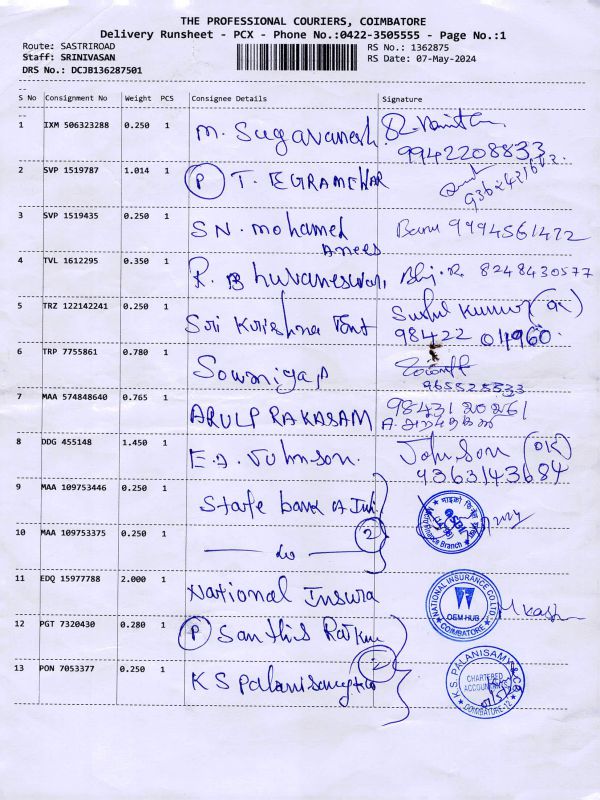 THE PROFESSIONAL COURIERS, COIMBATORE
Delivery Runsheet - PCX - Phone No.:0422-3505555 - Page No.:1
Route: SASTRIROAD RS No.: 1362875
Staff: SRINIVASAN RS Date: 07-May-2024
DRS No.: DCJB136287501
S No Consignment No Weight PCS Consignee Details Signature
1 IXM 506323288 0.250 1 M. Sugavanesh
9942208833
2 SVP 1519787 1.014 1 (P) T. EGRAMEWAR
3 SVP 1519435 0.250 1 SN. Mohamed Banu 9994561472
Anees
4 TVL 1612295 0.350 1 R. Bhuvaneswari 8248430577
5 TRZ 122142241 0.250 1 Sri Krishna Tent Sushil Kumar (OK)
98422 01960.
6 TRP 7755861 0.780 1 Sowmiya
9655255333
7 MAA 574848640 0.765 1 ARULPRAKASAM 98431 20261
8 DDG 455148 1.450 1 E.A. Johnson. Johnson (OK)
9363143684
9 MAA 109753446 0.250 1 State bank of Ind
10 MAA 109753375 0.250 1 do 2
11 EDQ 15977788 2.000 1 National Insura
NATIONAL INSURANCE CO.LTD.
OEM HUB
COIMBATORE
12 PGT 7320430 0.280 1 (P) Santhis
13 PON 7053377 0.250 1 K S Palanisamy & Co 2
K.S. PALANISAMY & CO
CHARTERED
ACCOUNTANTS
COIMBATORE-12